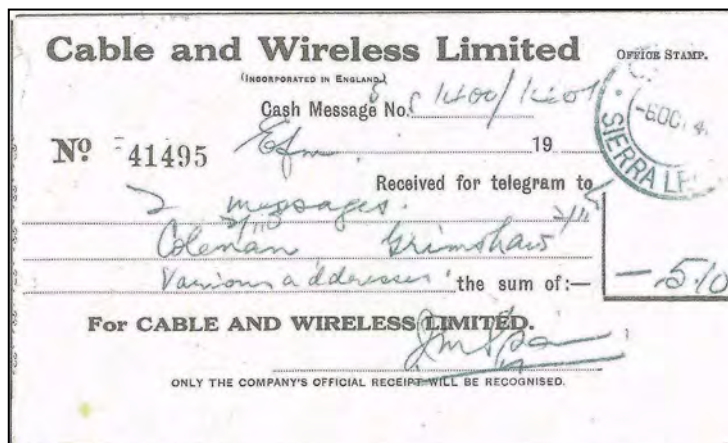 Cable and Wireless Limited
OFFICE STAMP.
(INCORPORATED IN ENGLAND.)
Cash Message No. 1400/1401
-6 OCT 4
SIERRA LE
Nº 41495 Efm. 19
Received for telegram to
2 messages.
2/11
Coleman Grimshaw
Various addresses the sum of:— — 5/0
For CABLE AND WIRELESS LIMITED.
ONLY THE COMPANY'S OFFICIAL RECEIPT WILL BE RECOGNISED.